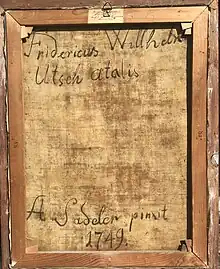 Fridericus Wilhelm
Utsch ætatis
A Sadeler pinxit
1749.